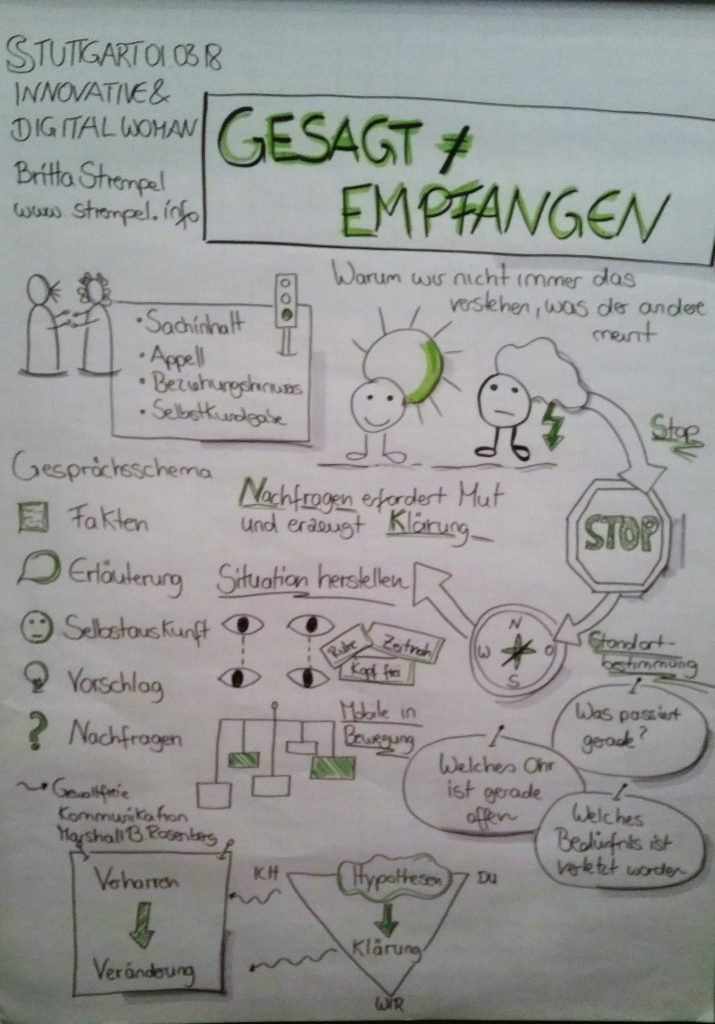 STUTTGART 01 03 18
INNOVATIVE &
DIGITAL WOMAN
Britta Strempel
www strempel.info
GESAGT ≠
EMPFANGEN
Warum wir nicht immer das
verstehen, was der andere
meint
• Sachinhalt
• Appell
• Beziehungshinweis
• Selbstkundgabe
Stop
STOP
Gesprächsschema
Fakten
Erläuterung
Selbstauskunft
Vorschlag
? Nachfragen
Nachfragen erfordert Mut
und erzeugt Klärung
Situation herstellen
Ruhe
Zeitnah
Kopf frei
N
W O
S
Standort-
bestimmung
Was passiert
gerade?
Welches Ohr
ist gerade
offen
Welches
Bedürfnis ist
verletzt worden
Mobile in
Bewegung
Gewaltfreie
Kommunikation
Marshall B. Rosenberg
Verharren
Veränderung
ICH
Hypothesen
DU
Klärung
WIR